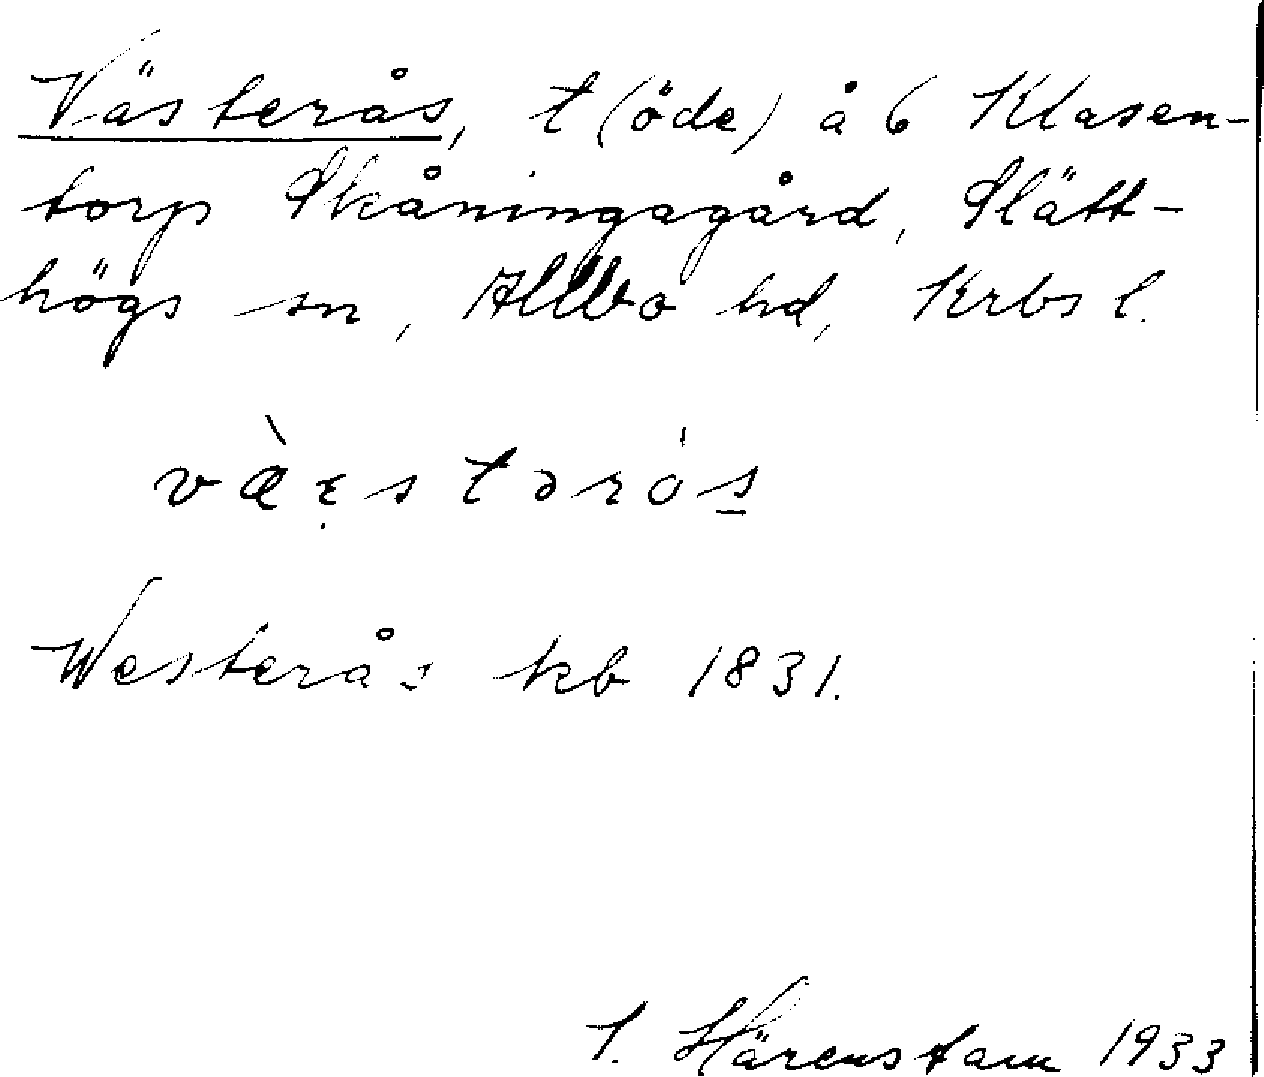 Västerås, t (öde) å 6 Klasen-
torp Skåningagård, Slätt-
högs sn, Allbo hd, Krbs l.
væ̀ɛ̣stərós̲
Westerås kb 1831.
Härenstam 1933